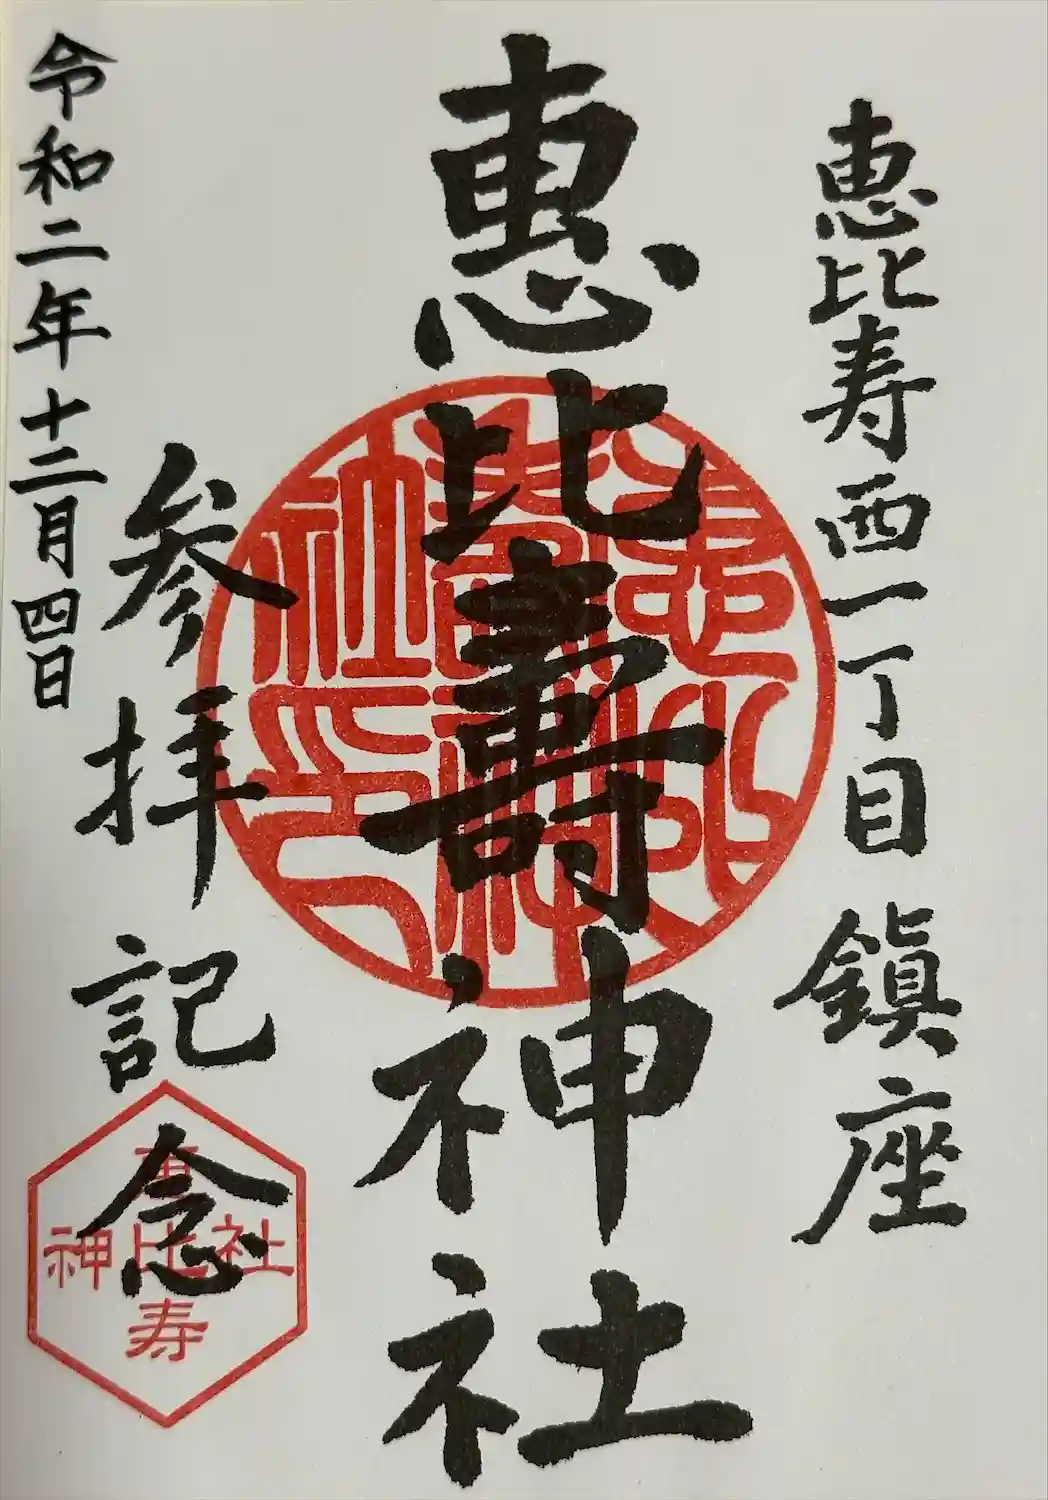 恵比寿西一丁目鎮座
恵比壽神社
参拝記念
令和二年十二月四日
恵比寿神社印
恵比寿
神社